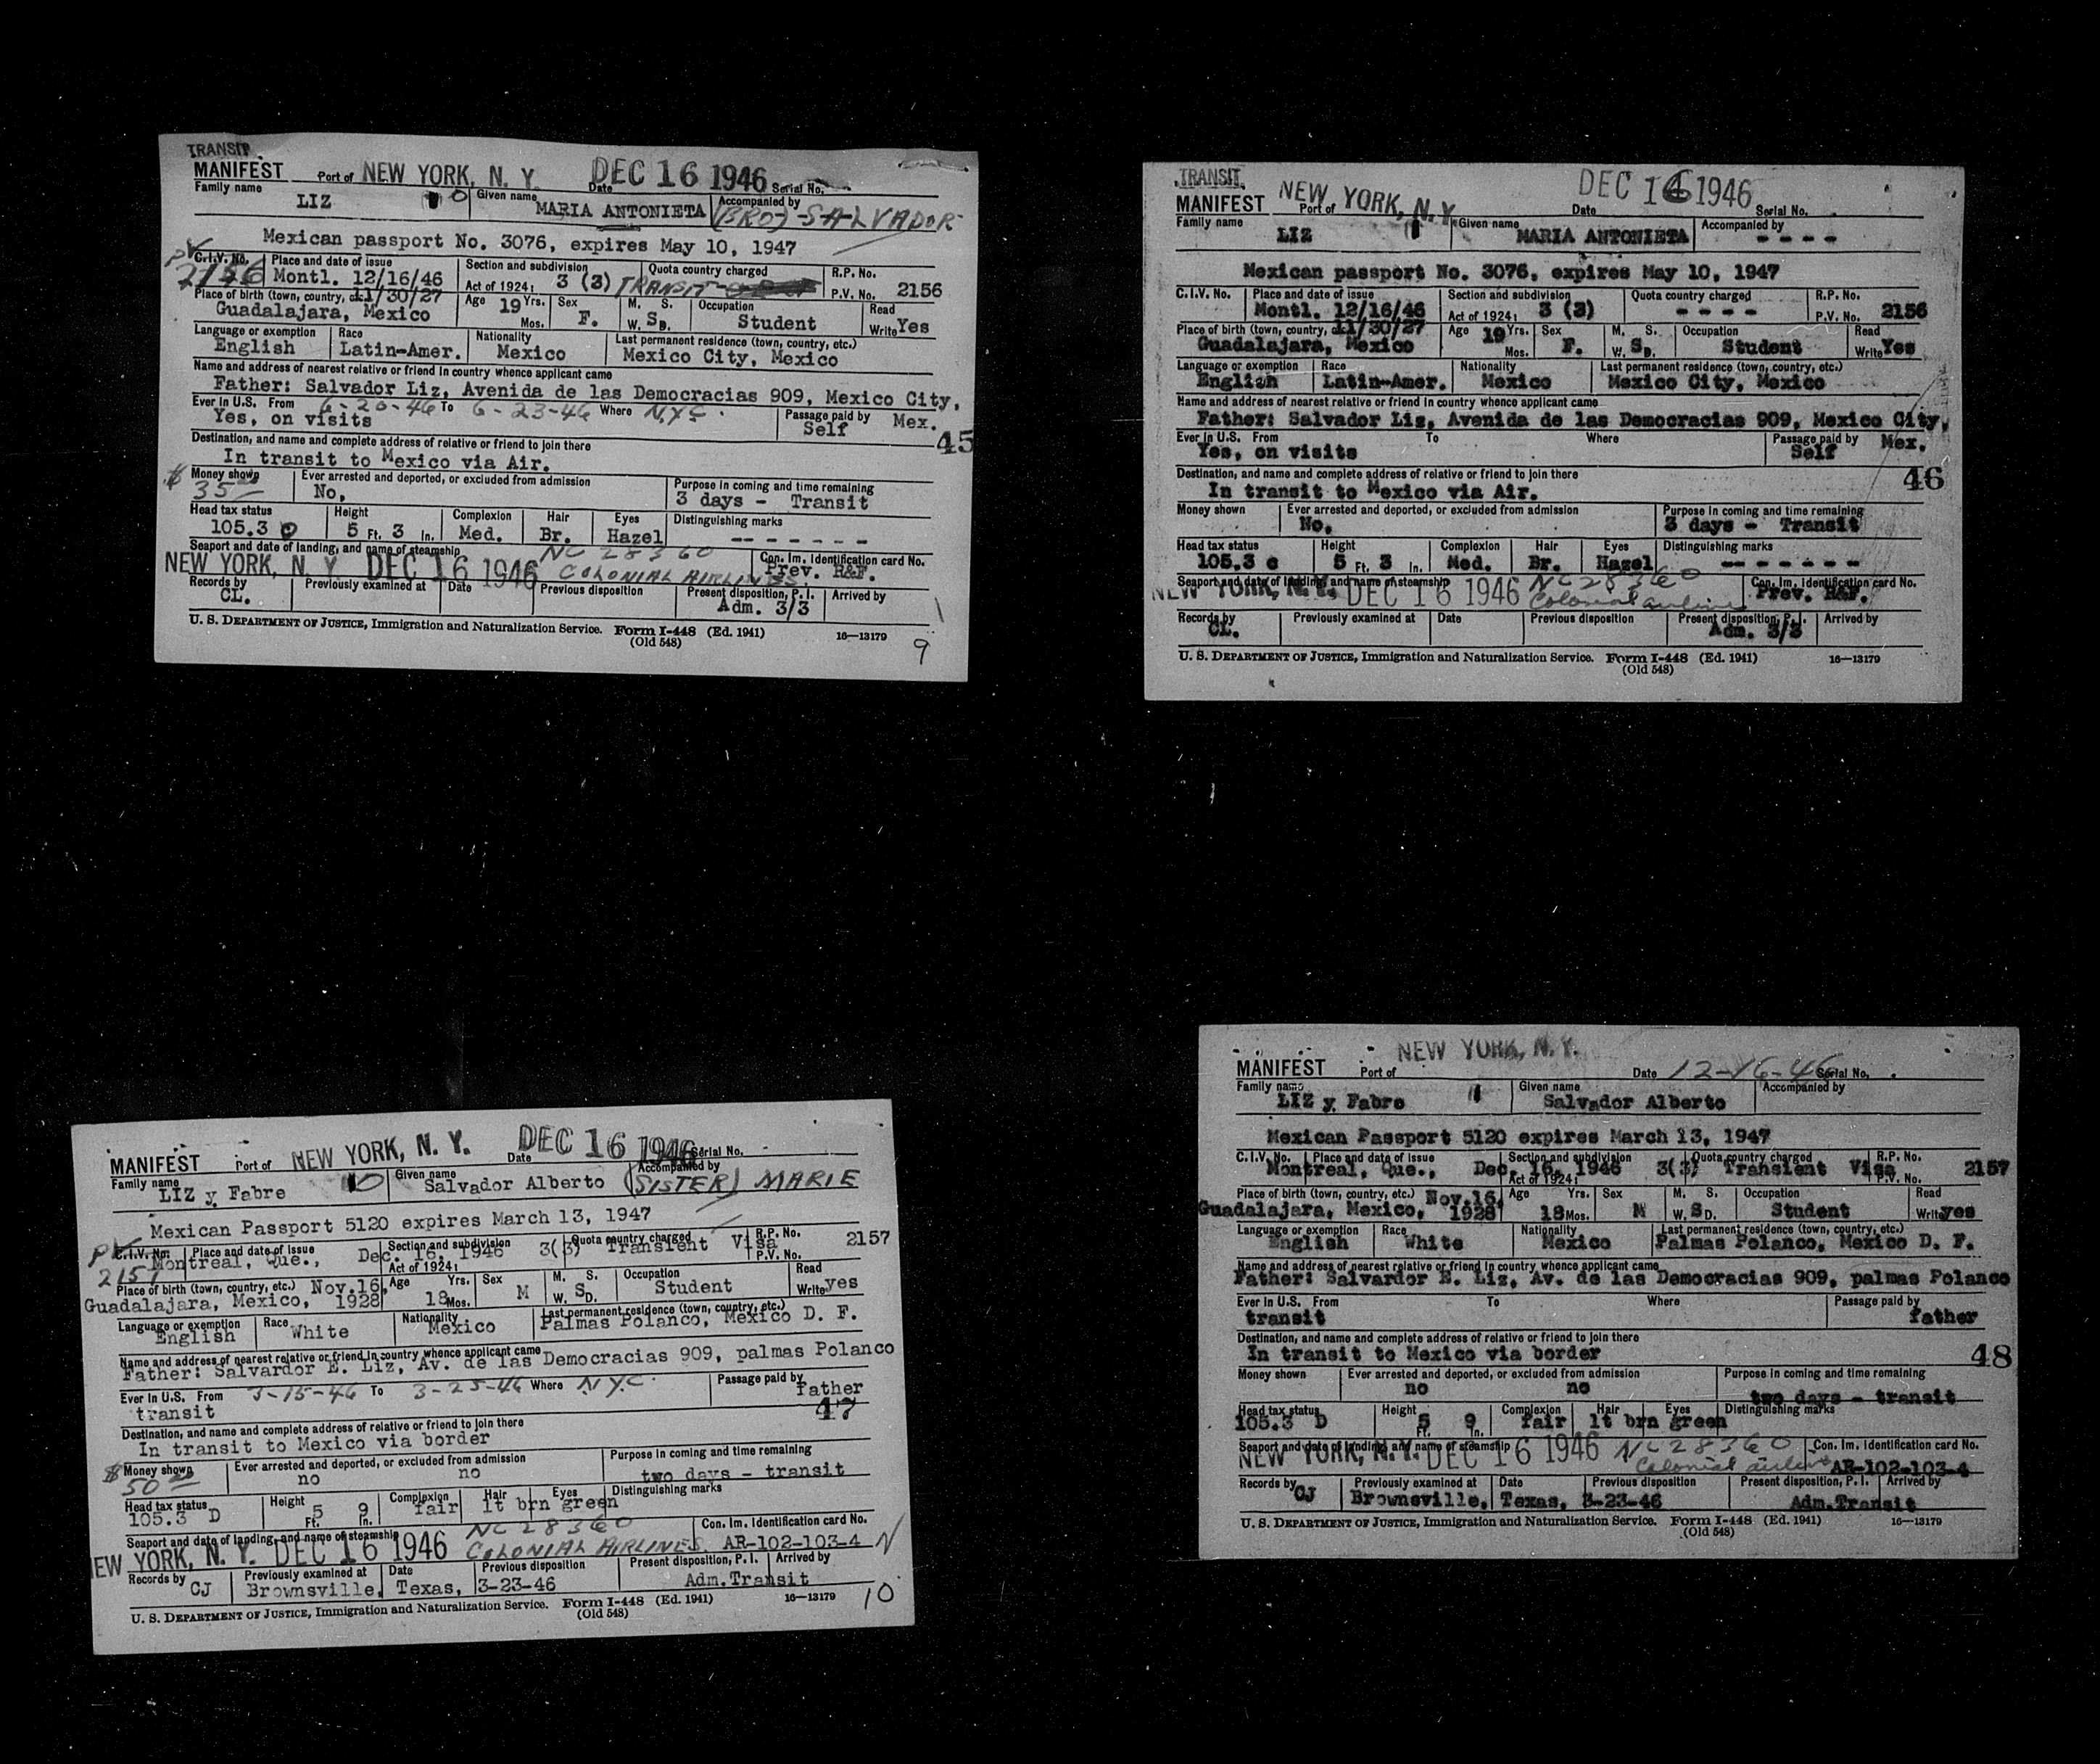 TRANSIT
MANIFEST Port of NEW YORK, N. Y. Date DEC 16 1946 Serial No.
Family name LIZ Given name MARIA ANTONIETA Accompanied by (BRO) SALVADOR
Mexican passport No. 3076, expires May 10, 1947
PV
C.I.V. No. 2156 Place and date of issue Montl. 12/16/46 Section and subdivision Act of 1924: 3 (3) TRANSIT Quota country charged R.P. No. P.V. No. 2156
Place of birth (town, country, etc.) 11/30/27 Guadalajara, Mexico Age 19 Yrs. Mos. Sex F. M. S. W. D. S Occupation Student Read Write Yes
Language or exemption English Race Latin-Amer. Nationality Mexico Last permanent residence (town, country, etc.) Mexico City, Mexico
Name and address of nearest relative or friend in country whence applicant came
Father: Salvador Liz, Avenida de las Democracias 909, Mexico City, Mex.
Ever in U.S. From 6-20-46 To 6-23-46 Where N.Y.C. Passage paid by
Yes, on visits Self
45
Destination, and name and complete address of relative or friend to join there
In transit to Mexico via Air.
Money shown $35 Ever arrested and deported, or excluded from admission No, Purpose in coming and time remaining 3 days - Transit
Head tax status 105.3 Height 5 Ft. 3 In. Complexion Med. Hair Br. Eyes Hazel Distinguishing marks -------
Seaport and date of landing, and name of steamship NEW YORK, N. Y. DEC 16 1946 NC 28360 COLONIAL AIRLINES Con. Im. Identification card No. Prev. R&F.
Records by CL. Previously examined at Date Previous disposition Present disposition, P. I. Adm. 3/3 Arrived by
U. S. DEPARTMENT OF JUSTICE, Immigration and Naturalization Service. Form I-448 (Ed. 1941) 16—13179
(Old 548)
9
TRANSIT
MANIFEST Port of NEW YORK, N. Y. Date DEC 16 1946 Serial No.
Family name LIZ Given name MARIA ANTONIETA Accompanied by ----
Mexican passport No. 3076, expires May 10, 1947
C.I.V. No. Place and date of issue Montl. 12/16/46 Section and subdivision Act of 1924: 3 (3) Quota country charged ---- R.P. No. P.V. No. 2156
Place of birth (town, country, etc.) 11/30/27 Guadalajara, Mexico Age 19 Yrs. Mos. Sex F. M. S. W. D. S Occupation Student Read Write Yes
Language or exemption English Race Latin-Amer. Nationality Mexico Last permanent residence (town, country, etc.) Mexico City, Mexico
Name and address of nearest relative or friend in country whence applicant came
Father: Salvador Liz, Avenida de las Democracias 909, Mexico City, Mex.
Ever in U.S. From To Where Passage paid by
Yes, on visits Self
46
Destination, and name and complete address of relative or friend to join there
In transit to Mexico via Air.
Money shown Ever arrested and deported, or excluded from admission No, Purpose in coming and time remaining 3 days - Transit
Head tax status 105.3 c Height 5 Ft. 3 In. Complexion Med. Hair Br. Eyes Hazel Distinguishing marks -------
Seaport and date of landing, and name of steamship NEW YORK, N. Y. DEC 16 1946 NC 28360 Colonial airlines Con. Im. Identification card No. Prev. R&F.
Records by CL. Previously examined at Date Previous disposition Present disposition, P. I. Adm. 3/3 Arrived by
U. S. DEPARTMENT OF JUSTICE, Immigration and Naturalization Service. Form I-448 (Ed. 1941) 16—13179
(Old 548)
MANIFEST Port of NEW YORK, N. Y. Date DEC 16 1946 Serial No.
Family name LIZ y Fabre Given name Salvador Alberto Accompanied by (SISTER) MARIE
Mexican Passport 5120 expires March 13, 1947
PV
C.I.V. No. 2157 Place and date of issue Montreal, Que., Dec. 16, 1946 Section and subdivision Act of 1924: 3(3) Quota country charged Transient Visa R.P. No. P.V. No. 2157
Place of birth (town, country, etc.) Nov.16, 1928 Guadalajara, Mexico, Age 18 Yrs. Mos. Sex M M. S. W. D. S Occupation Student Read Write yes
Language or exemption English Race White Nationality Mexico Last permanent residence (town, country, etc.) Palmas Polanco, Mexico D. F.
Name and address of nearest relative or friend in country whence applicant came
Father: Salvardor E. Liz, Av. de las Democracias 909, palmas Polanco
Ever in U.S. From 3-15-46 To 3-25-46 Where N.Y.C. Passage paid by father
transit
47
Destination, and name and complete address of relative or friend to join there
In transit to Mexico via border
Money shown $50 00 Ever arrested and deported, or excluded from admission no no Purpose in coming and time remaining two days - transit
Head tax status 105.3 D Height 5 Ft. 9 In. Complexion fair Hair lt brn Eyes green Distinguishing marks
Seaport and date of landing, and name of steamship NEW YORK, N. Y. DEC 16 1946 NC 28360 COLONIAL AIRLINES Con. Im. Identification card No. AR-102-103-4 N
Records by CJ Previously examined at Brownsville, Date Texas, Previous disposition 3-23-46 Present disposition, P. I. Adm.Transit Arrived by
U. S. DEPARTMENT OF JUSTICE, Immigration and Naturalization Service. Form I-448 (Ed. 1941) 16—13179
(Old 548)
10
MANIFEST Port of NEW YORK, N. Y. Date 12-16-46 Serial No.
Family name LIZ y Fabre Given name Salvador Alberto Accompanied by
Mexican Passport 5120 expires March 13, 1947
C.I.V. No. Place and date of issue Montreal, Que., Dec. 16, 1946 Section and subdivision Act of 1924: 3(3) Quota country charged Transient Visa R.P. No. P.V. No. 2157
Place of birth (town, country, etc.) Nov.16, 1928 Guadalajara, Mexico, Age 18 Yrs. Mos. Sex M M. S. W. D. S Occupation Student Read Write yes
Language or exemption English Race White Nationality Mexico Last permanent residence (town, country, etc.) Palmas Polanco, Mexico D. F.
Name and address of nearest relative or friend in country whence applicant came
Father: Salvardor E. Liz, Av. de las Democracias 909, palmas Polanco
Ever in U.S. From To Where Passage paid by
transit father
Destination, and name and complete address of relative or friend to join there
In transit to Mexico via border
48
Money shown Ever arrested and deported, or excluded from admission no no Purpose in coming and time remaining two days - transit
Head tax status 105.3 D Height 5 Ft. 9 In. Complexion fair Hair lt brn Eyes green Distinguishing marks
Seaport and date of landing, and name of steamship NEW YORK, N. Y. DEC 16 1946 NC 28360 Colonial airlines Con. Im. Identification card No. AR-102-103-4
Records by CJ Previously examined at Brownsville, Date Texas, 3-23-46 Previous disposition Present disposition, P. I. Adm.Transit Arrived by
U. S. DEPARTMENT OF JUSTICE, Immigration and Naturalization Service. Form I-448 (Ed. 1941) 16—13179
(Old 548)